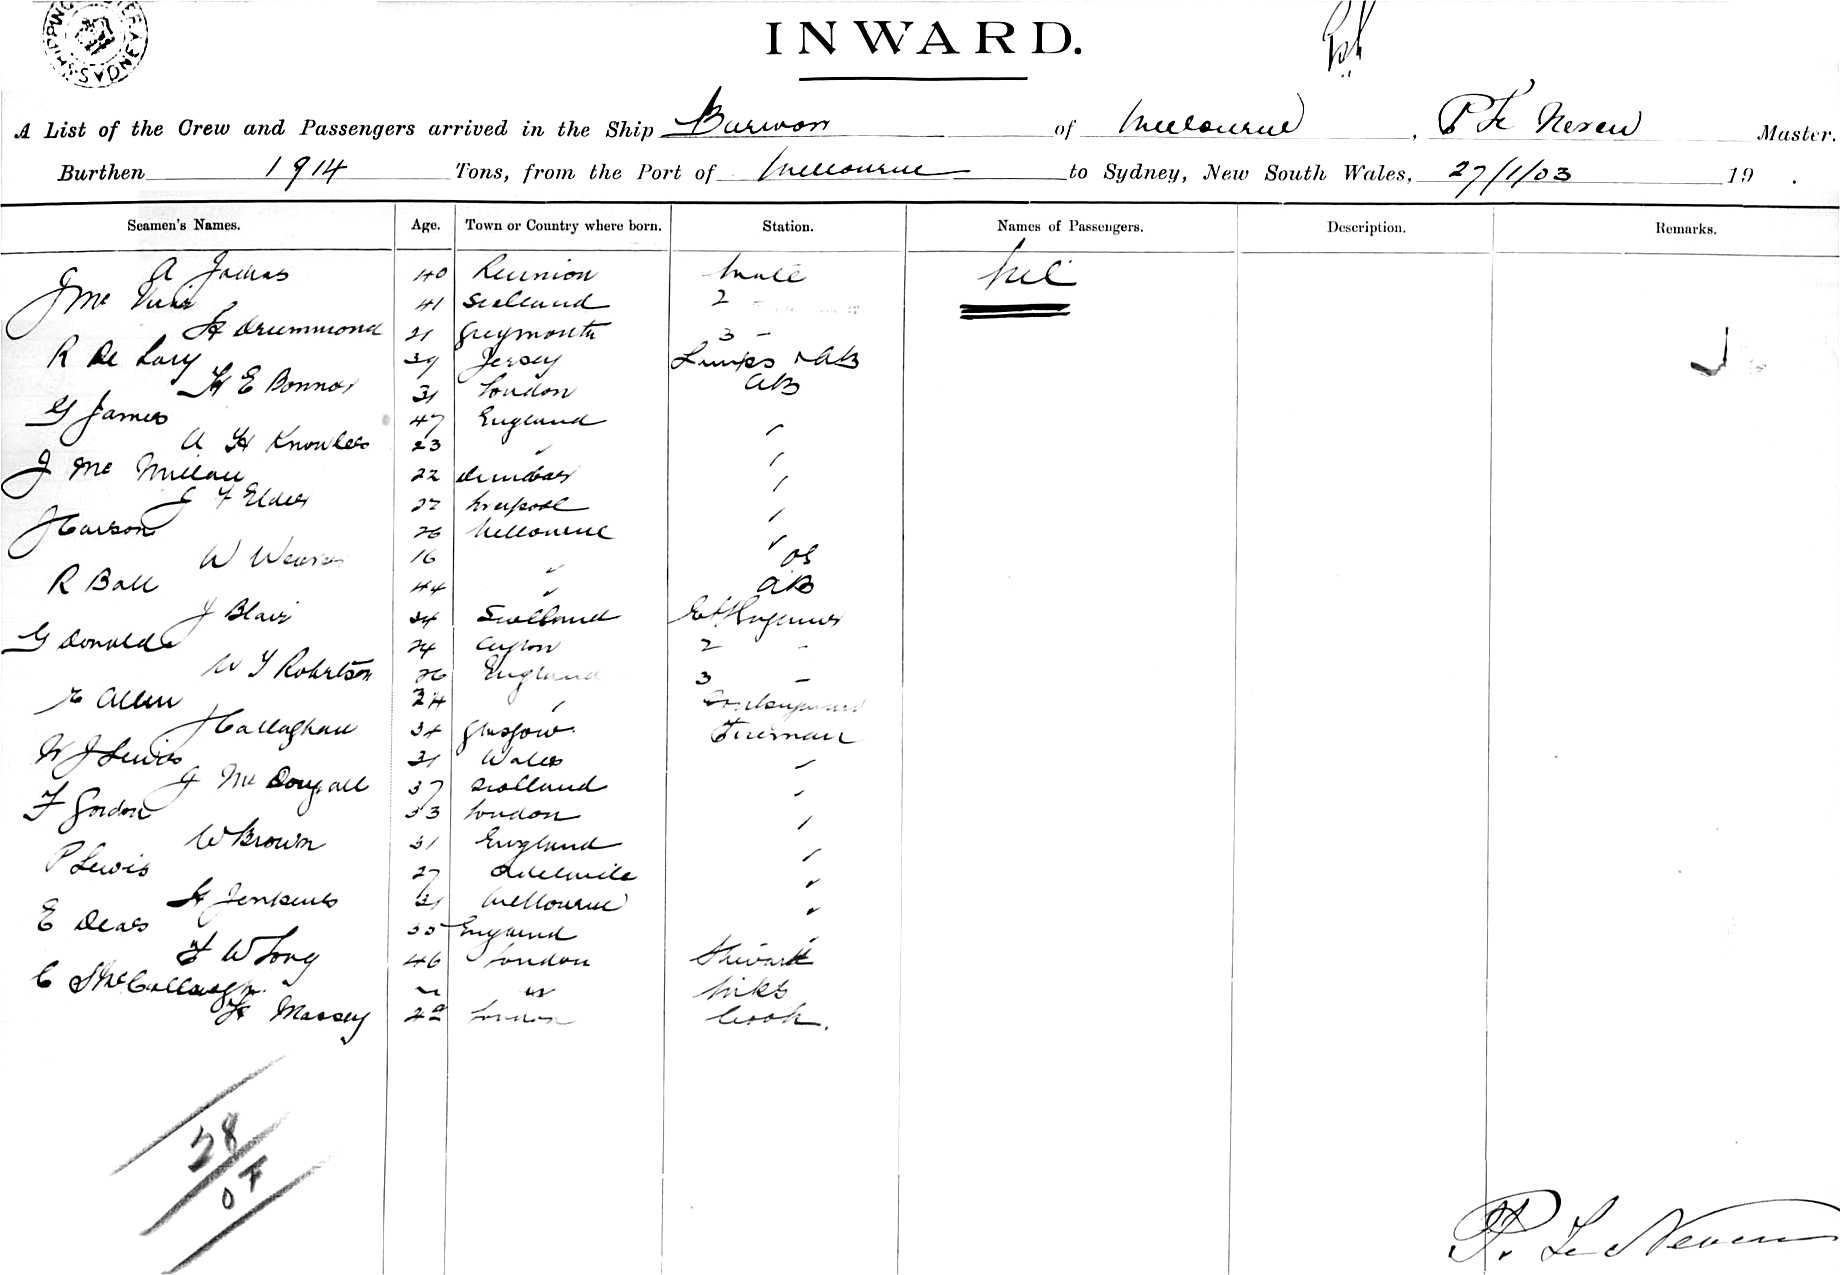 INWARD.
A List of the Crew and Passengers arrived in the Ship Barwon of Melbourne, P Le Neveu Master.
Burthen 1914 Tons, from the Port of Melbourne to Sydney, New South Wales, 27/1/03 19 .
Seamen's Names. Age. Town or Country where born. Station. Names of Passengers. Description. Remarks.
A 40 Reunion Mate Nil
J Mc 41 Scotland 2
H Drummond 21 Greymouth 3 -
R De 39 Jersey Lamps & AB
H E Bonnor 31 London AB
G James 47 England "
A H Knowles 23 " "
J Mc Millan 22 Dundee "
J F Elder 27 Liverpool "
J Carson 26 Melbourne "
W Weaver 16 " OS
R Ball 44 " AB
J Blair 34 Scotland Engineer
G Donald 24 2 -
W J Robertson 26 England 3 -
E Allen 24 "
J Callaghan 34 Glasgow Fireman
W J Lewis 31 Wales "
J Mc Dougall 37 Scotland "
F Gordon 33 London "
W Brown 31 England "
P Lewis 27 Adelaide "
H Jenkins 31 Melbourne "
E Dear 35 England "
F W Long 46 London Steward
C McCullough
H Massey London Cook.
28
0 F
P. Le Neveu